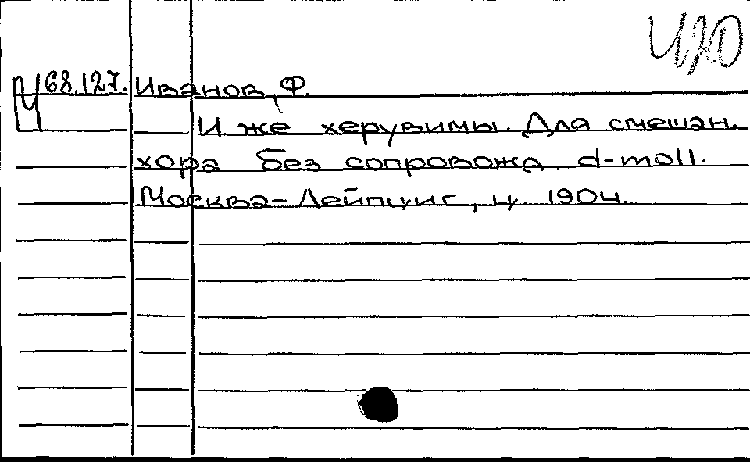 ЧХО
Ц 68.127. Иванов, Ф.
И же херувимы. Для смешан.
хора без сопровожд. d-moll.
Москва-Лейпциг, ц. 1904